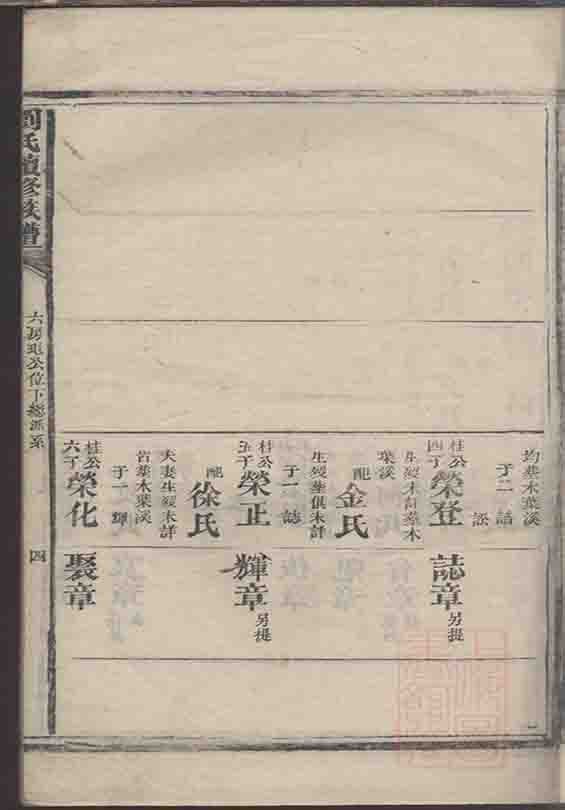 均葬木葉溪
子二 語
訟
桂公
四子
榮登
生歿未詳葬木
葉溪
配
金氏
生歿葬俱未詳
子一 誌
桂公
五子
榮正
配
徐氏
夫妻生歿未詳
皆葬木葉溪
子一 輝
桂公
六子
榮化
誌章 另提
輝章 另提
聚章
劉氏續修族譜
六房
公位下總派系
四